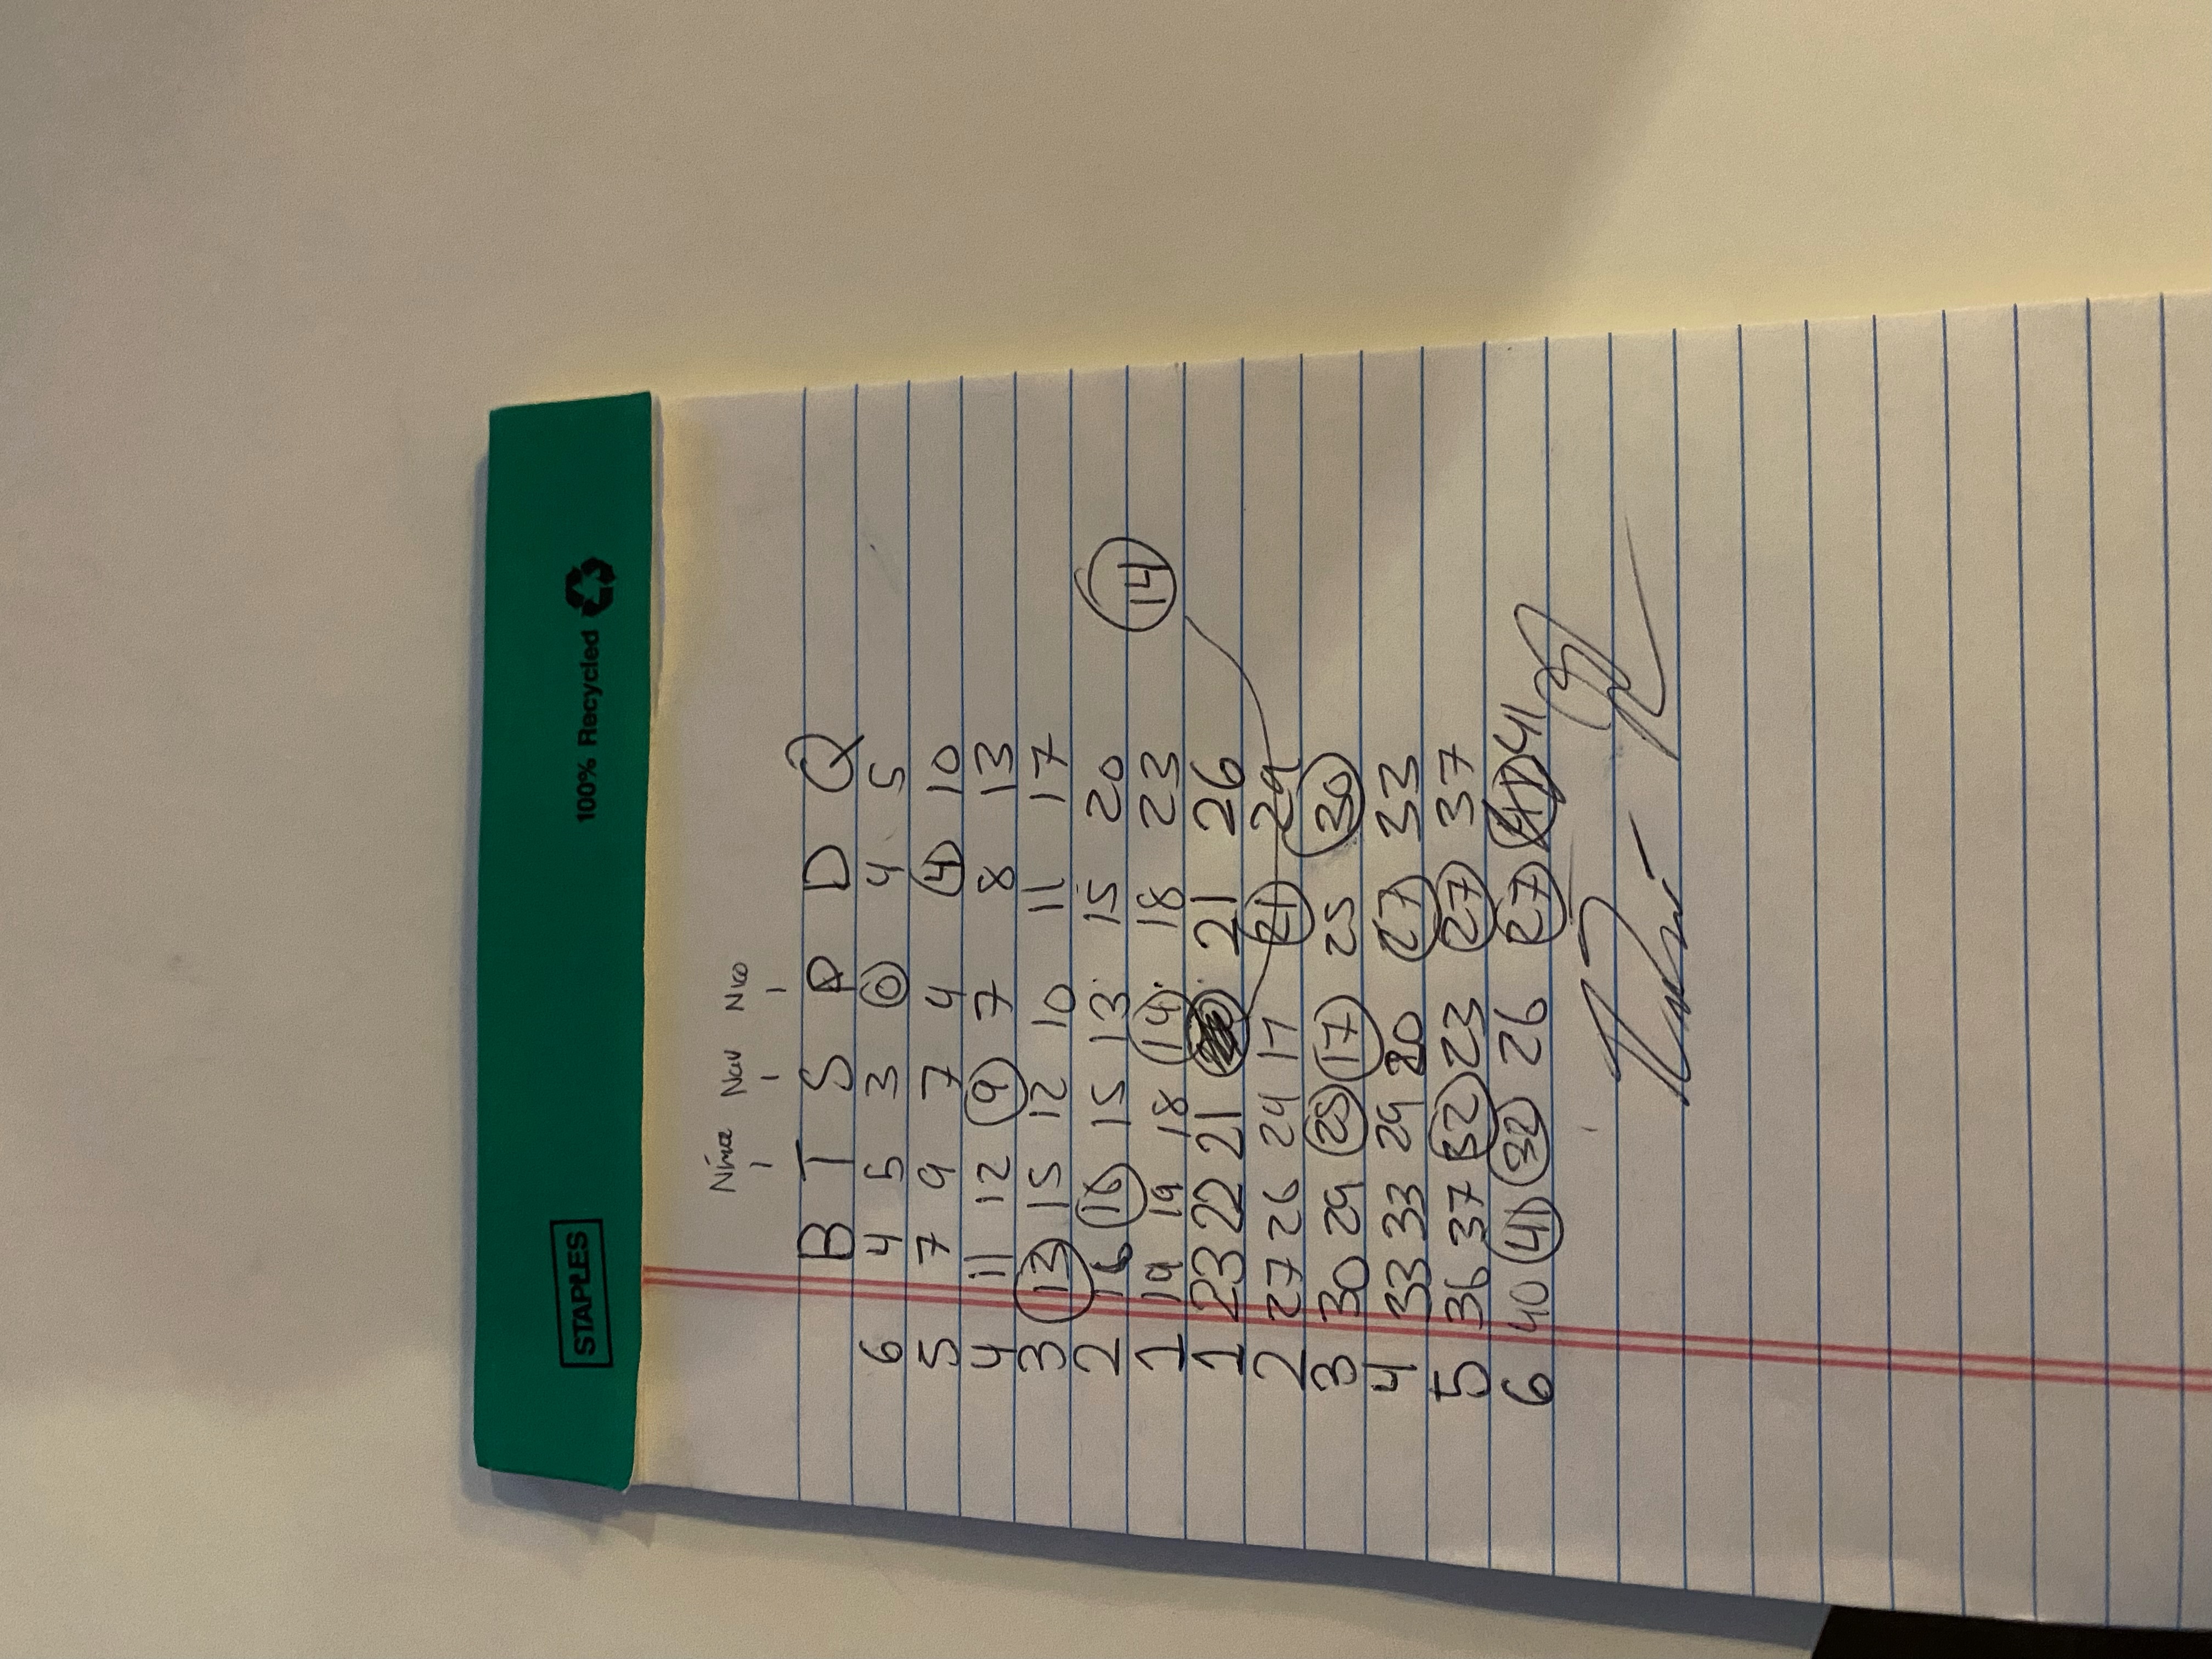 STAPLES 100% Recycled
Nav Nico
B T S P D Q
6 4 5 3 0 4 5
5 7 9 7 4 4 10
4 11 12 9 7 8 13
3 13 15 12 10 11 17
2 16 16 15 13 15 20
14
1 19 19 18 14 18 23
1 23 22 21 21 26
2 27 26 24 17 21 29
3 30 29 25 17 25 30
4 33 33 29 20 27 33
5 36 37 32 23 27 37
6 40 41 32 26 27 41 41